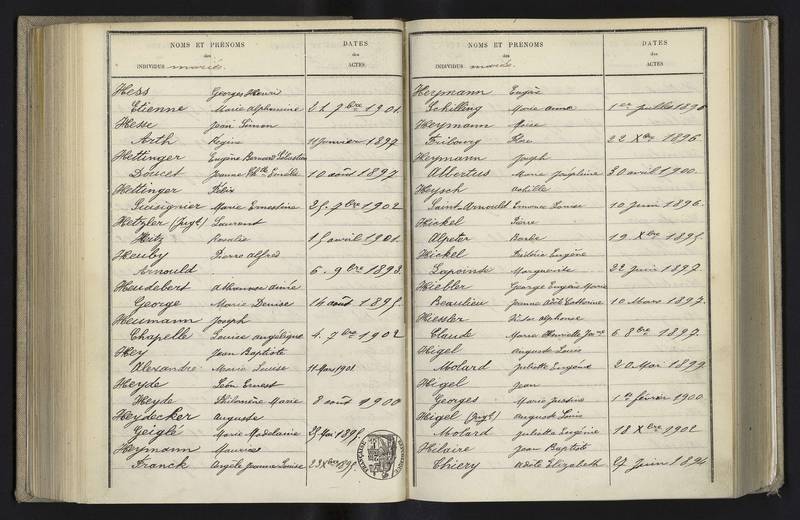 NOMS ET PRÉNOMS
des
INDIVIDUS mariés.
DATES
des
ACTES.
Hess Georges Henri
Etienne Marie Alphonsine 21. 7bre 1901.
Hesse Jean Simon
Arth Régine 11 janvier 1897
Hettinger Eugène Bernard Sébastien
Doucet Jeanne 10 août 1897
Hettinger Félix
Marie Ernestine 25. 9bre 1902
Hetzler (Jugt) Laurent
Heitz Rosalie 15 avril 1901.
Heuby Pierre Alfred
Arnould 6. 9bre 1893.
Heudebert
George Marie Denise 14 août 1895.
Heumann Joseph
Chapelle Louise Angélique 4. 7bre 1902
Hey Jean Baptiste
Alexandre Marie Louise 11 Mars 1901
Heyde Léon Ernest
Heyde Philomène Marie 8 août 1900
Heydecker Auguste
Geiglé Marie Madelaine 28 Mai 1895.
Heymann Maurice
Franck Angèle Jeanne Louise 23 Xbre 1895.
NOMS ET PRÉNOMS
des
INDIVIDUS mariés.
DATES
des
ACTES.
Heymann Eugène
Schilling Marie Anna 1er Juillet 1896
Heymann Moïse
Fribourg Flore 22 Xbre 1896.
Heymann Joseph
Albertus Marie Joséphine 30 avril 1900.
Heysch Achille
Saint-Arnould Ermance Louise 10 Juin 1896.
Hickel Pierre
Alpeter Barbe 19 Xbre 1895.
Hickel Frédéric Eugène
Lapointe Marguerite 22 Juin 1897.
Hiebler George Eugène Marie
Beaulieu Jeanne Adèle Catherine 10 Mars 1897.
Hiessler Victor Alphonse
Claude Marie Henriette 6. 8bre 1897.
Higel Auguste Louis
Molard Juliette Eugénie 20 Mai 1899.
Higel Jean
Georges Marie Justine 1er février 1900
Higel (Jugt) Auguste Louis
Molard Juliette Eugénie 18 Xbre 1902
Hilaire Jean Baptiste
Thiery Adèle Elizabeth 27 Juin 1894